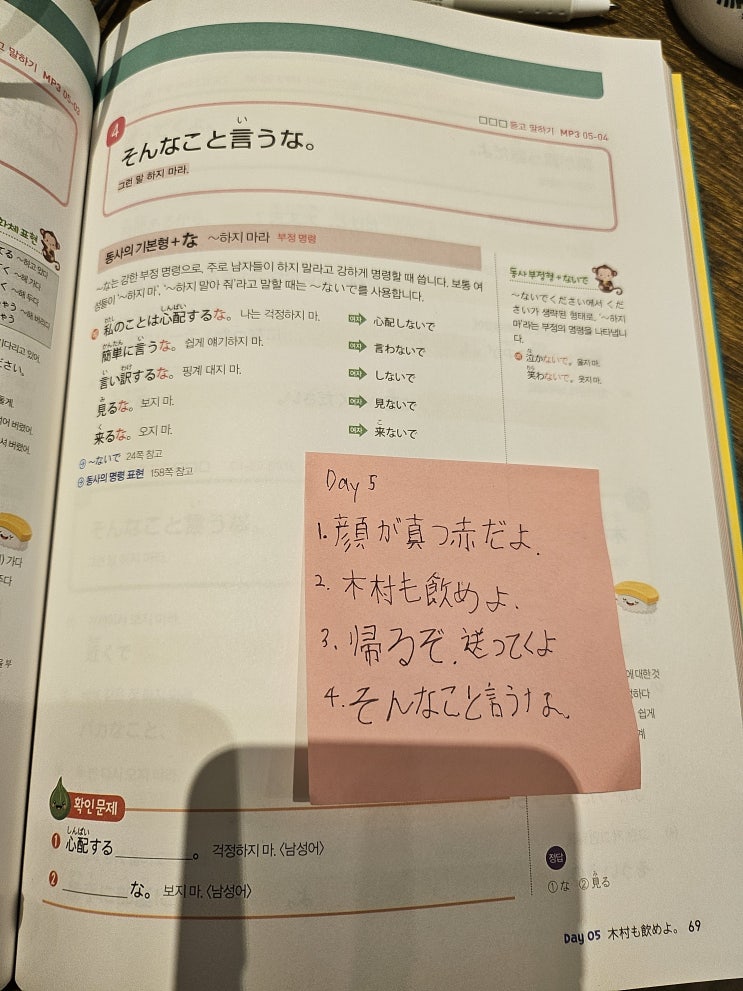 고 말하기 MP3 05-03
4
そんなこと言うな。
い
그런 말 하지 마라.
□□□ 듣고 말하기 MP3 05-04
동사의 기본형 + な ~하지 마라 부정 명령
~な는 강한 부정 명령으로, 주로 남자들이 하지 말라고 강하게 명령할 때 씁니다. 보통 여
성들이 '~하지 마', '~하지 말아 줘'라고 말할 때는 ~ないで를 사용합니다.
わたし しんぱい
예 私のことは心配するな。 나는 걱정하지 마. 여자 心配しないで
かんたん い
簡単に言うな。 쉽게 얘기하지 마. 여자 言わないで
い わけ
言い訳するな。 핑계 대지 마. 여자 しないで
み
見るな。 보지 마. 여자 見ないで
く こ
来るな。 오지 마. 여자 来ないで
~ないで 24쪽 참고
동사의 명령 표현 158쪽 참고
동사 부정형 + ないで
~ないでください에서 くだ
さい가 생략된 형태로, '~하지
마'라는 부정의 명령을 나타냅니
다.
な
예 泣かないで。 울지 마.
わら
笑わないで。 웃지 마.
Day 5
1. 顔が真っ赤だよ.
2. 木村も飲めよ.
3. 帰るぞ. 送ってくよ
4. そんなこと言うな。
화체 표현
てる ~하고 있다
~해 가다
~해 두다
ちゃう ~해 버리다
기다리고 있어.
ださい。
가다
주다
에 대한 것
쉽게
확인문제
しんぱい
1 心配する________。 걱정하지 마. 〈남성어〉
2 ________な。 보지 마. 〈남성어〉
정답
み
①な ②見る
Day 05 木村も飲めよ。 69